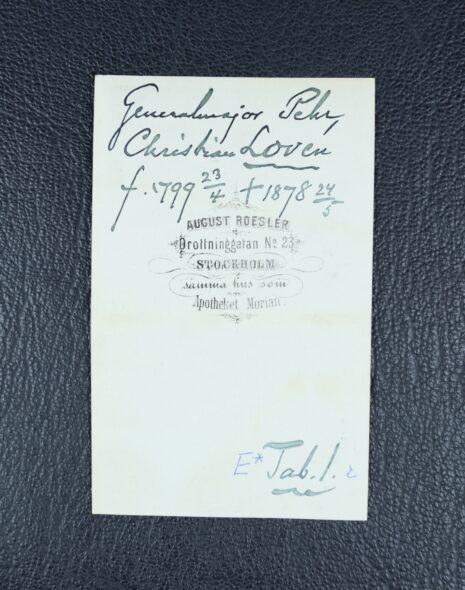 Generalmajor Pehr
Christian Lovén
f. 1799 23/4 † 1878 24/5
AUGUST ROESLER
Drottninggatan No 23
STOCKHOLM
samma hus som
Apotheket Morian
E* Tab. 1. 2